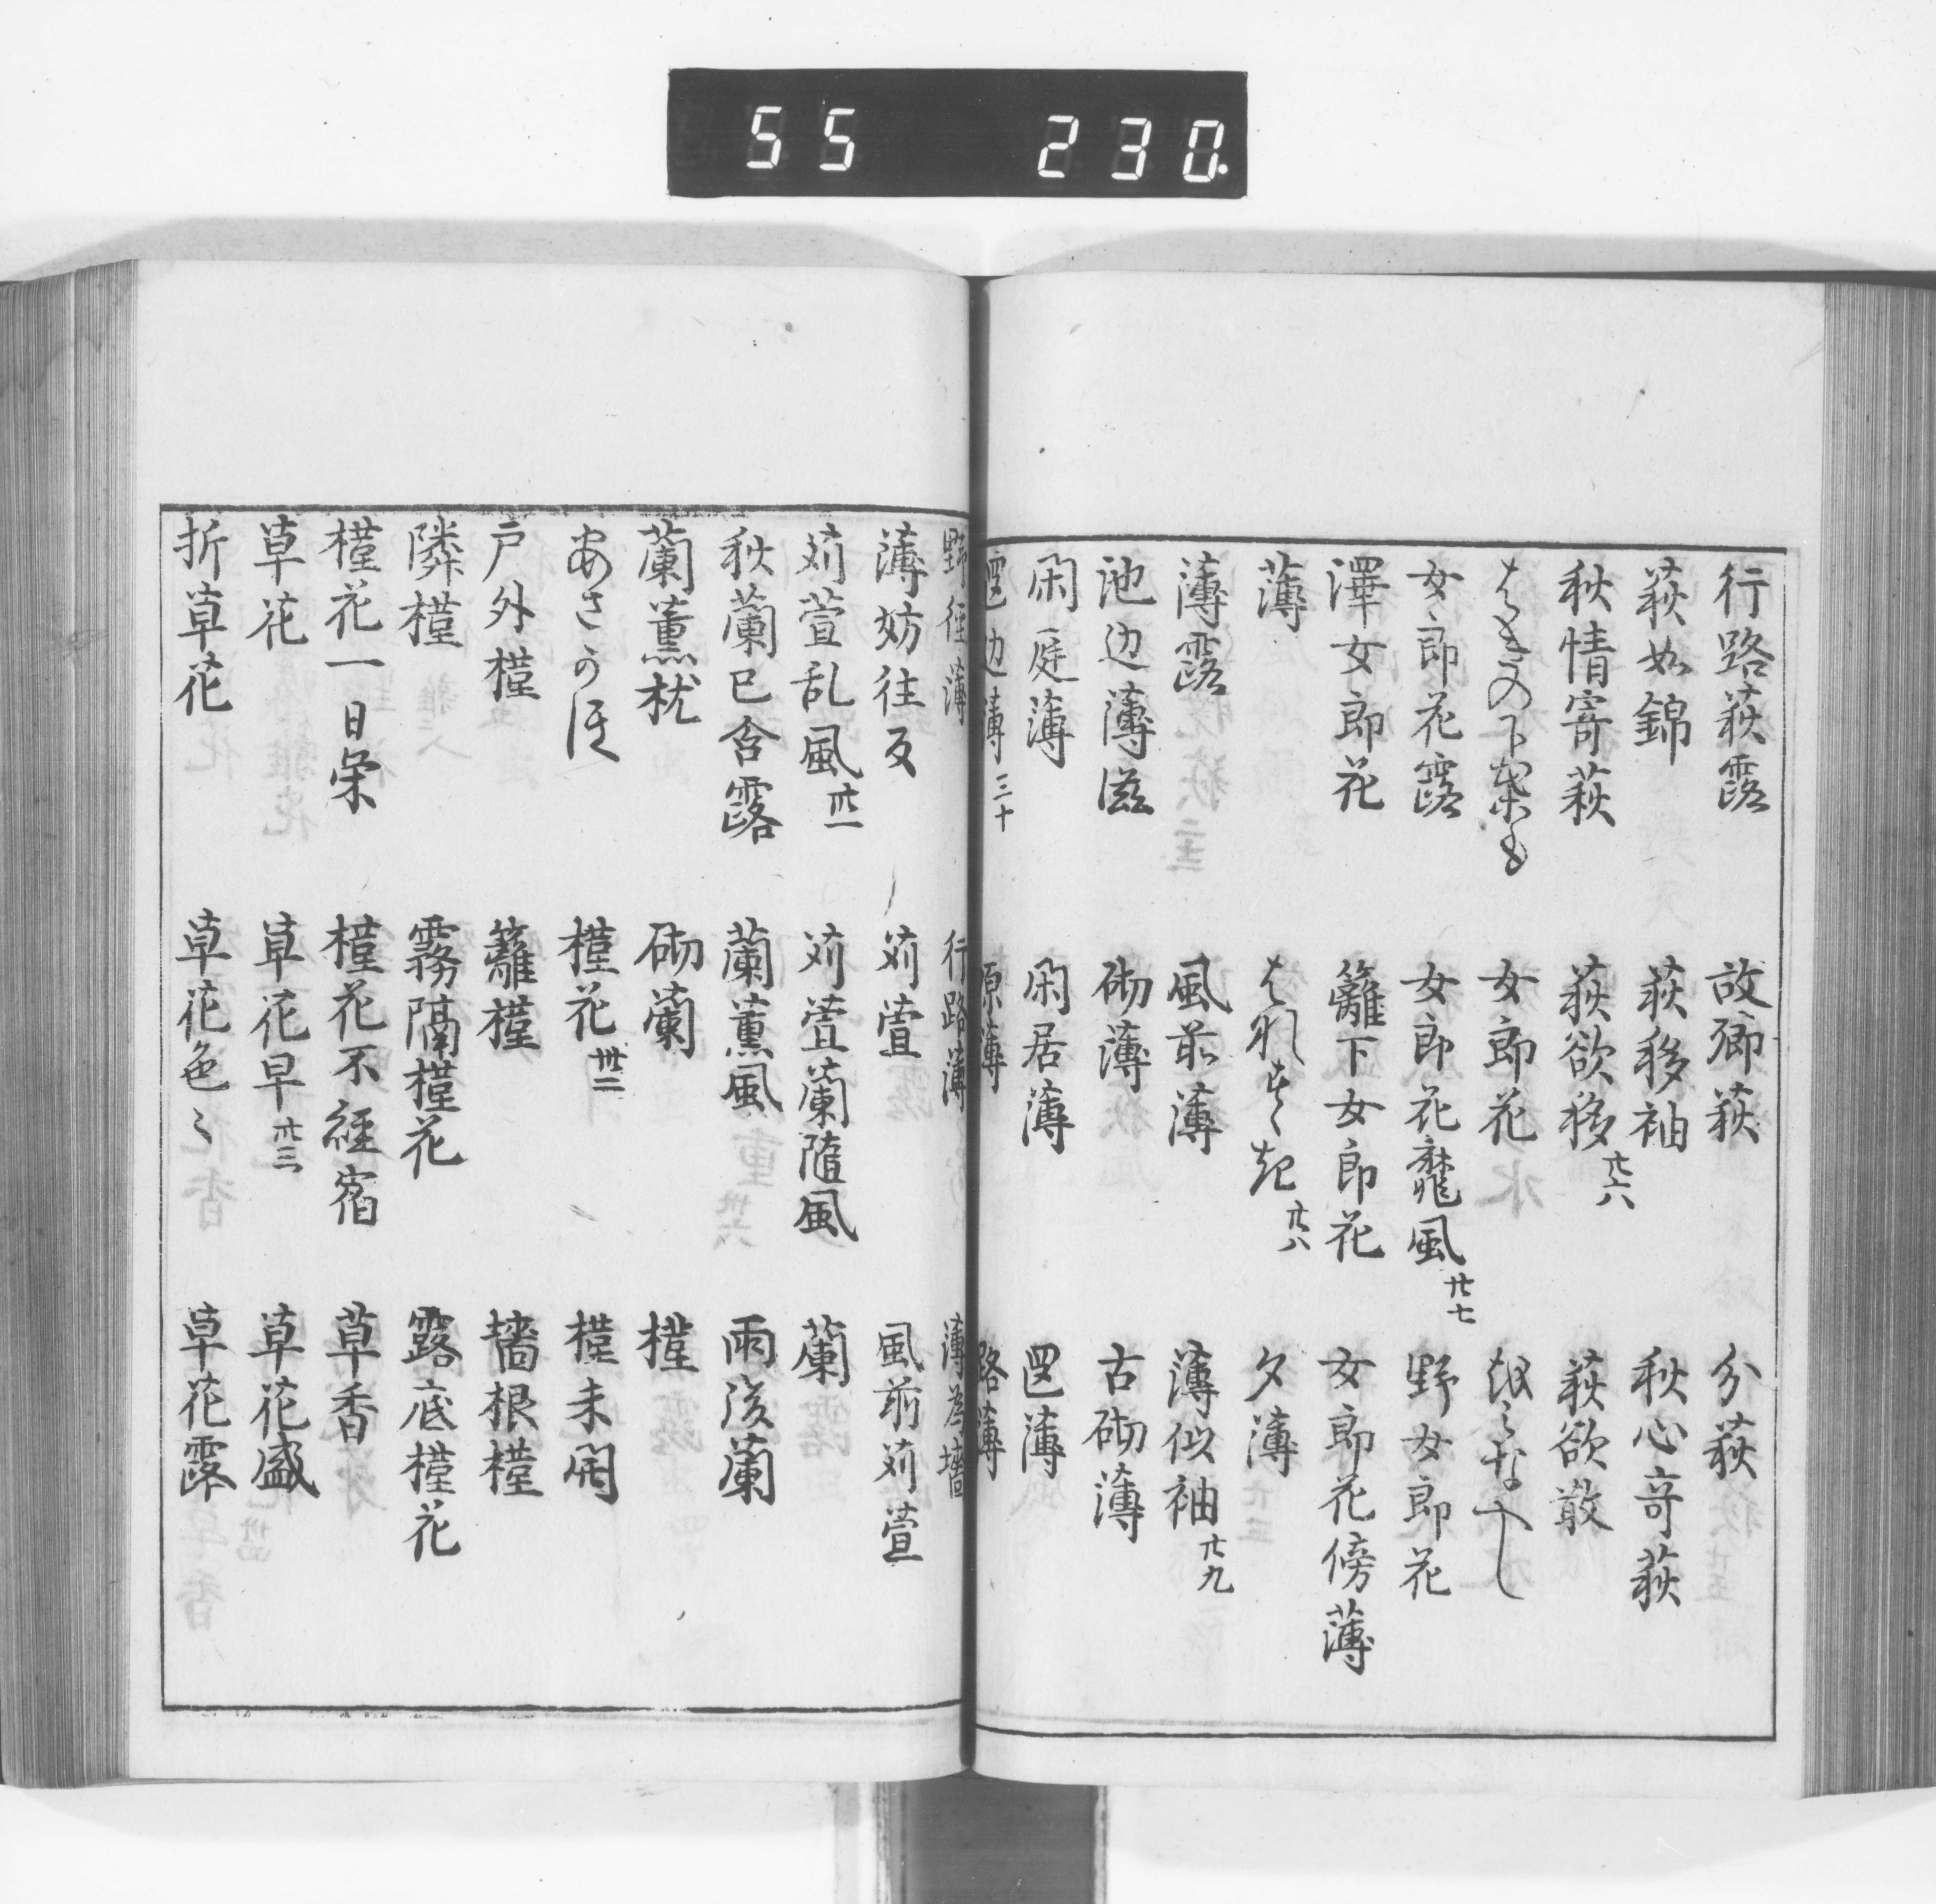 55 230.
行路萩露 故郷萩 分萩
萩如錦 萩移袖 秋心寄萩
秋情寄萩 萩欲移 廿六 萩欲散
女郎花
女郎花露 女郎花靡風 廿七 野女郎花
澤女郎花 籬下女郎花 女郎花傍薄
薄 廿八 夕薄
薄露 風前薄 薄似袖 廿九
池辺薄滋 砌薄 古砌薄
閑庭薄 閑居薄 薄
辺薄 三十 原薄 路薄
野径薄 行路薄 薄為墻
薄妨往反 苅萱 風前苅萱
苅萱乱風 丗一 苅萱蘭随風 蘭
秋蘭已含露 蘭薫風 雨後蘭
蘭薫枕 砌蘭 槿
あさかほ 槿花 丗二 槿未開
戸外槿 籬槿 墻根槿
隣槿 霧隔槿花 露底槿花
槿花一日栄 槿花不経宿 草香
草花 草花早 丗三 草花盛
折草花 草花色〻 草花露